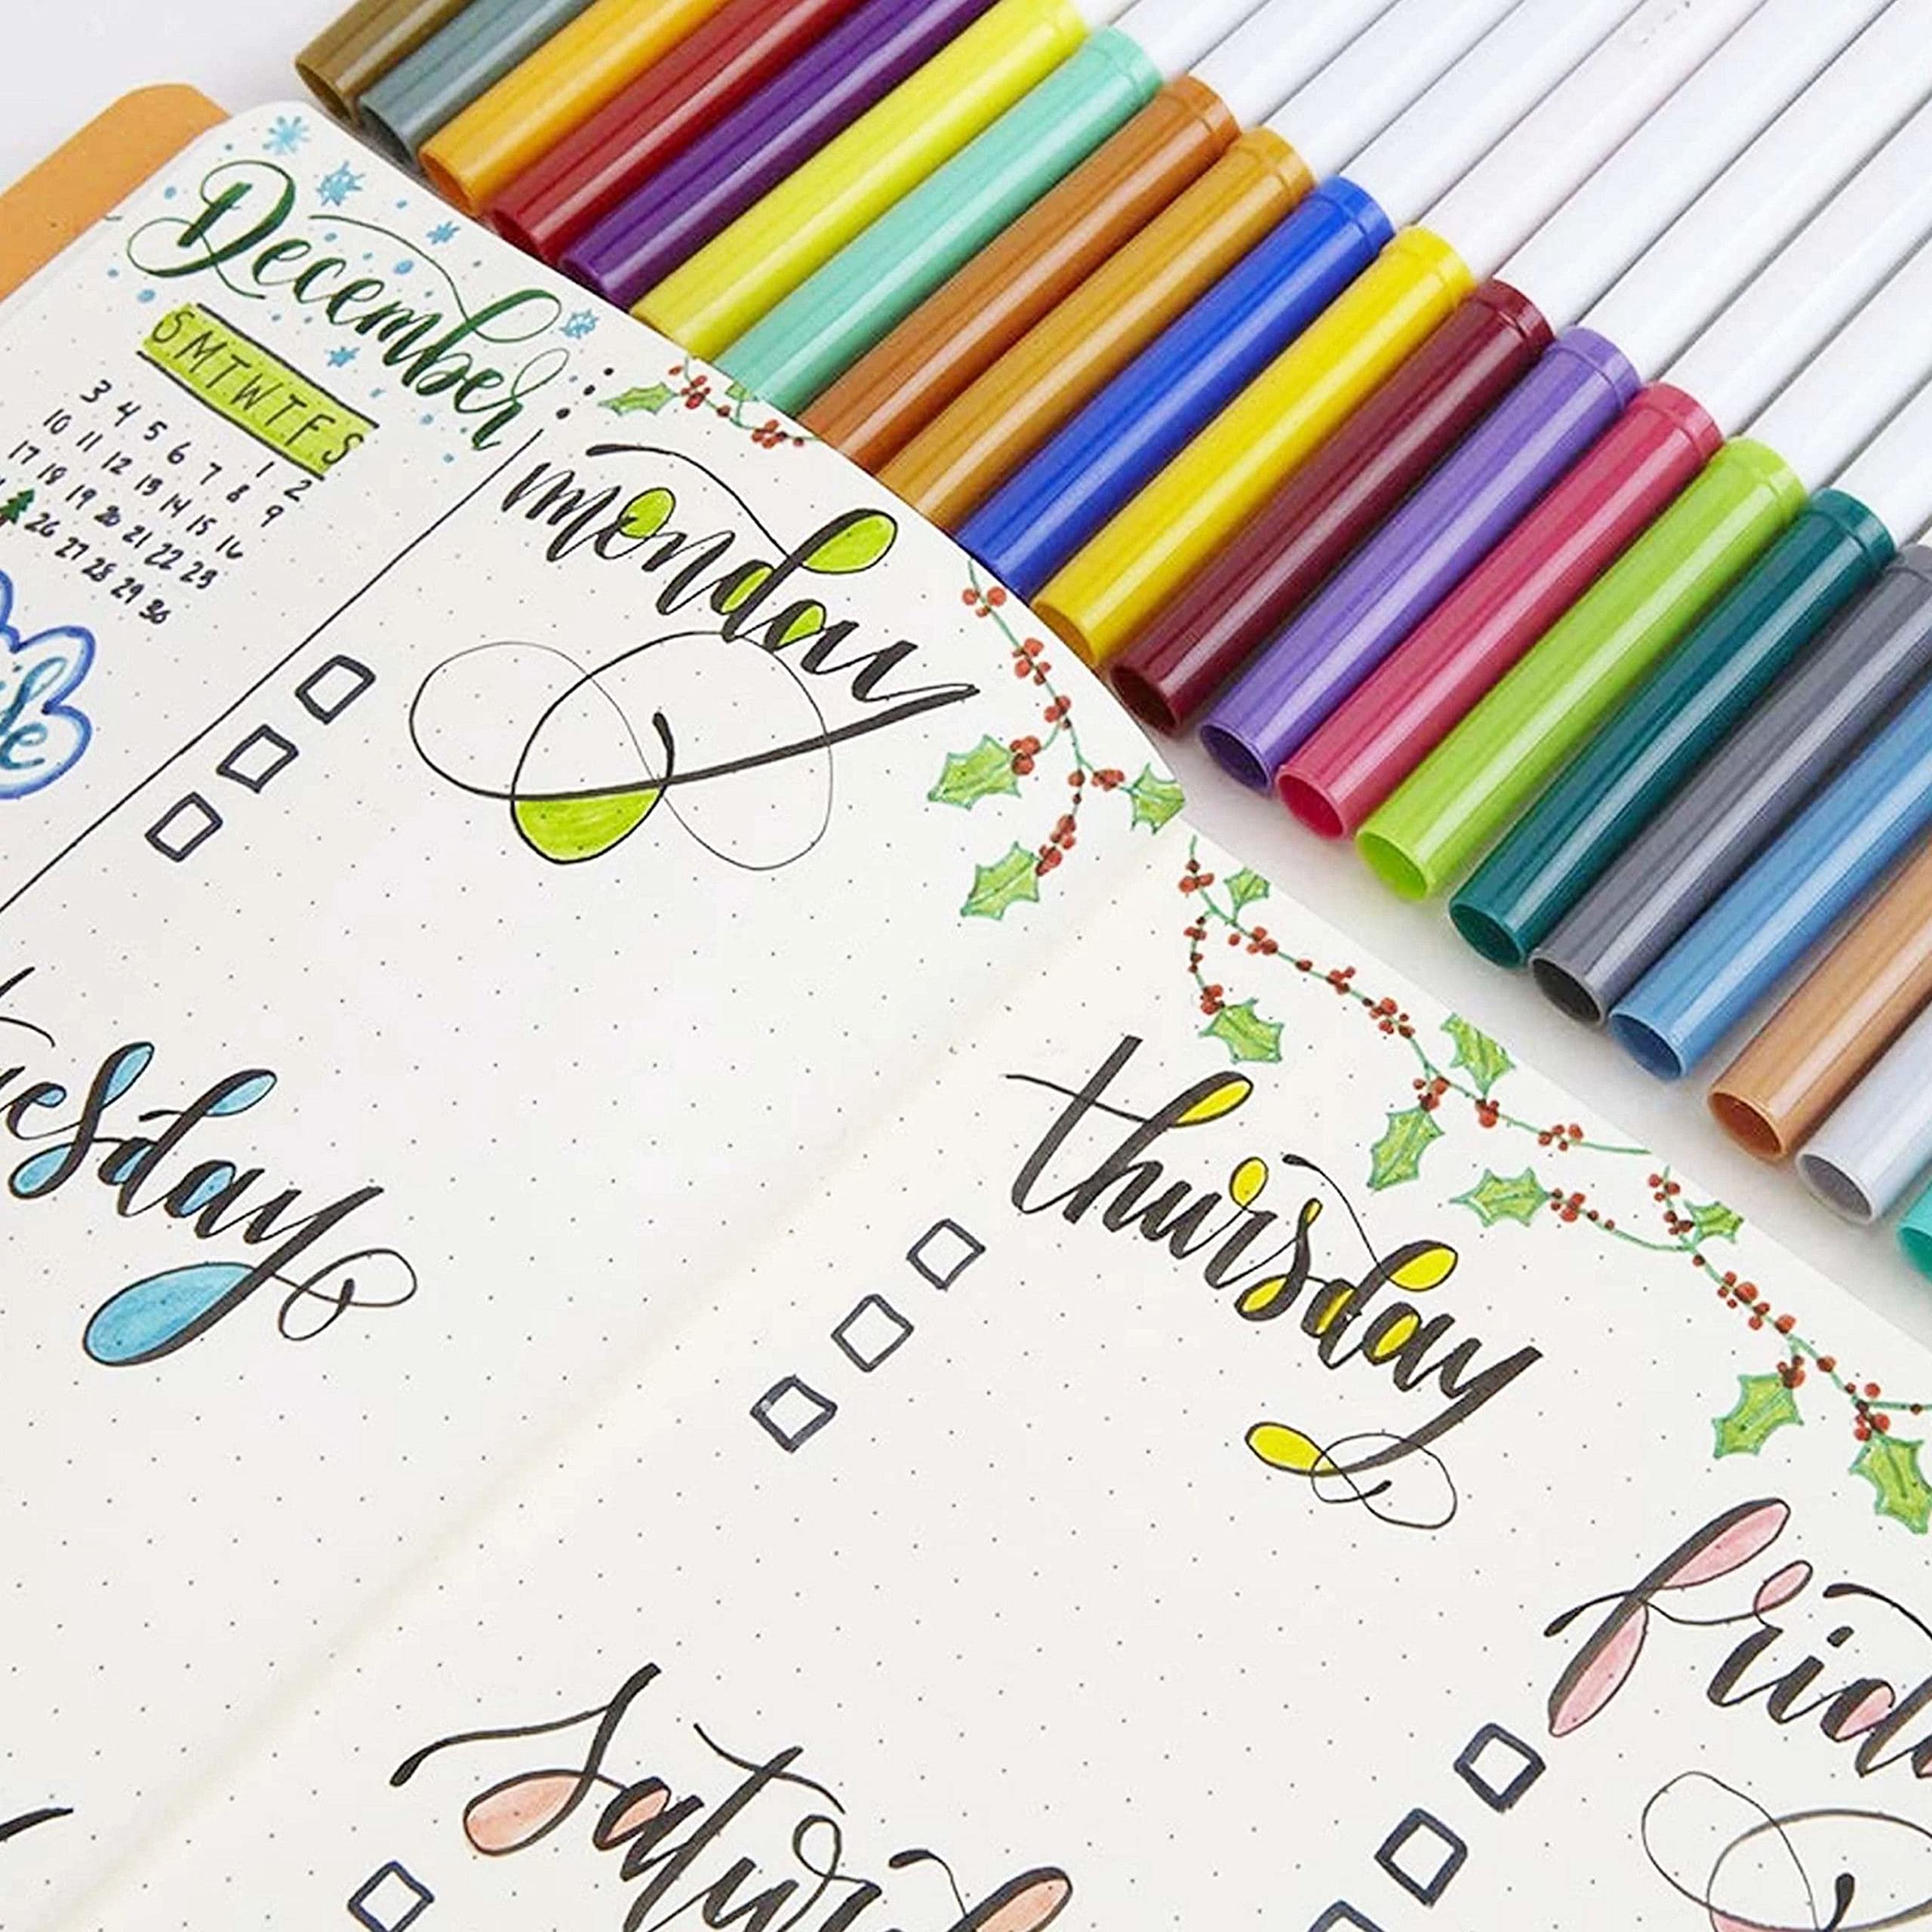 December
S M T W T F S
1 2
3 4 5 6 7 8 9
10 11 12 13 14 15 16
17 18 19 20 21 22 23
26 27 28 29 30
monday
tuesday
thursday
frida
Saturd